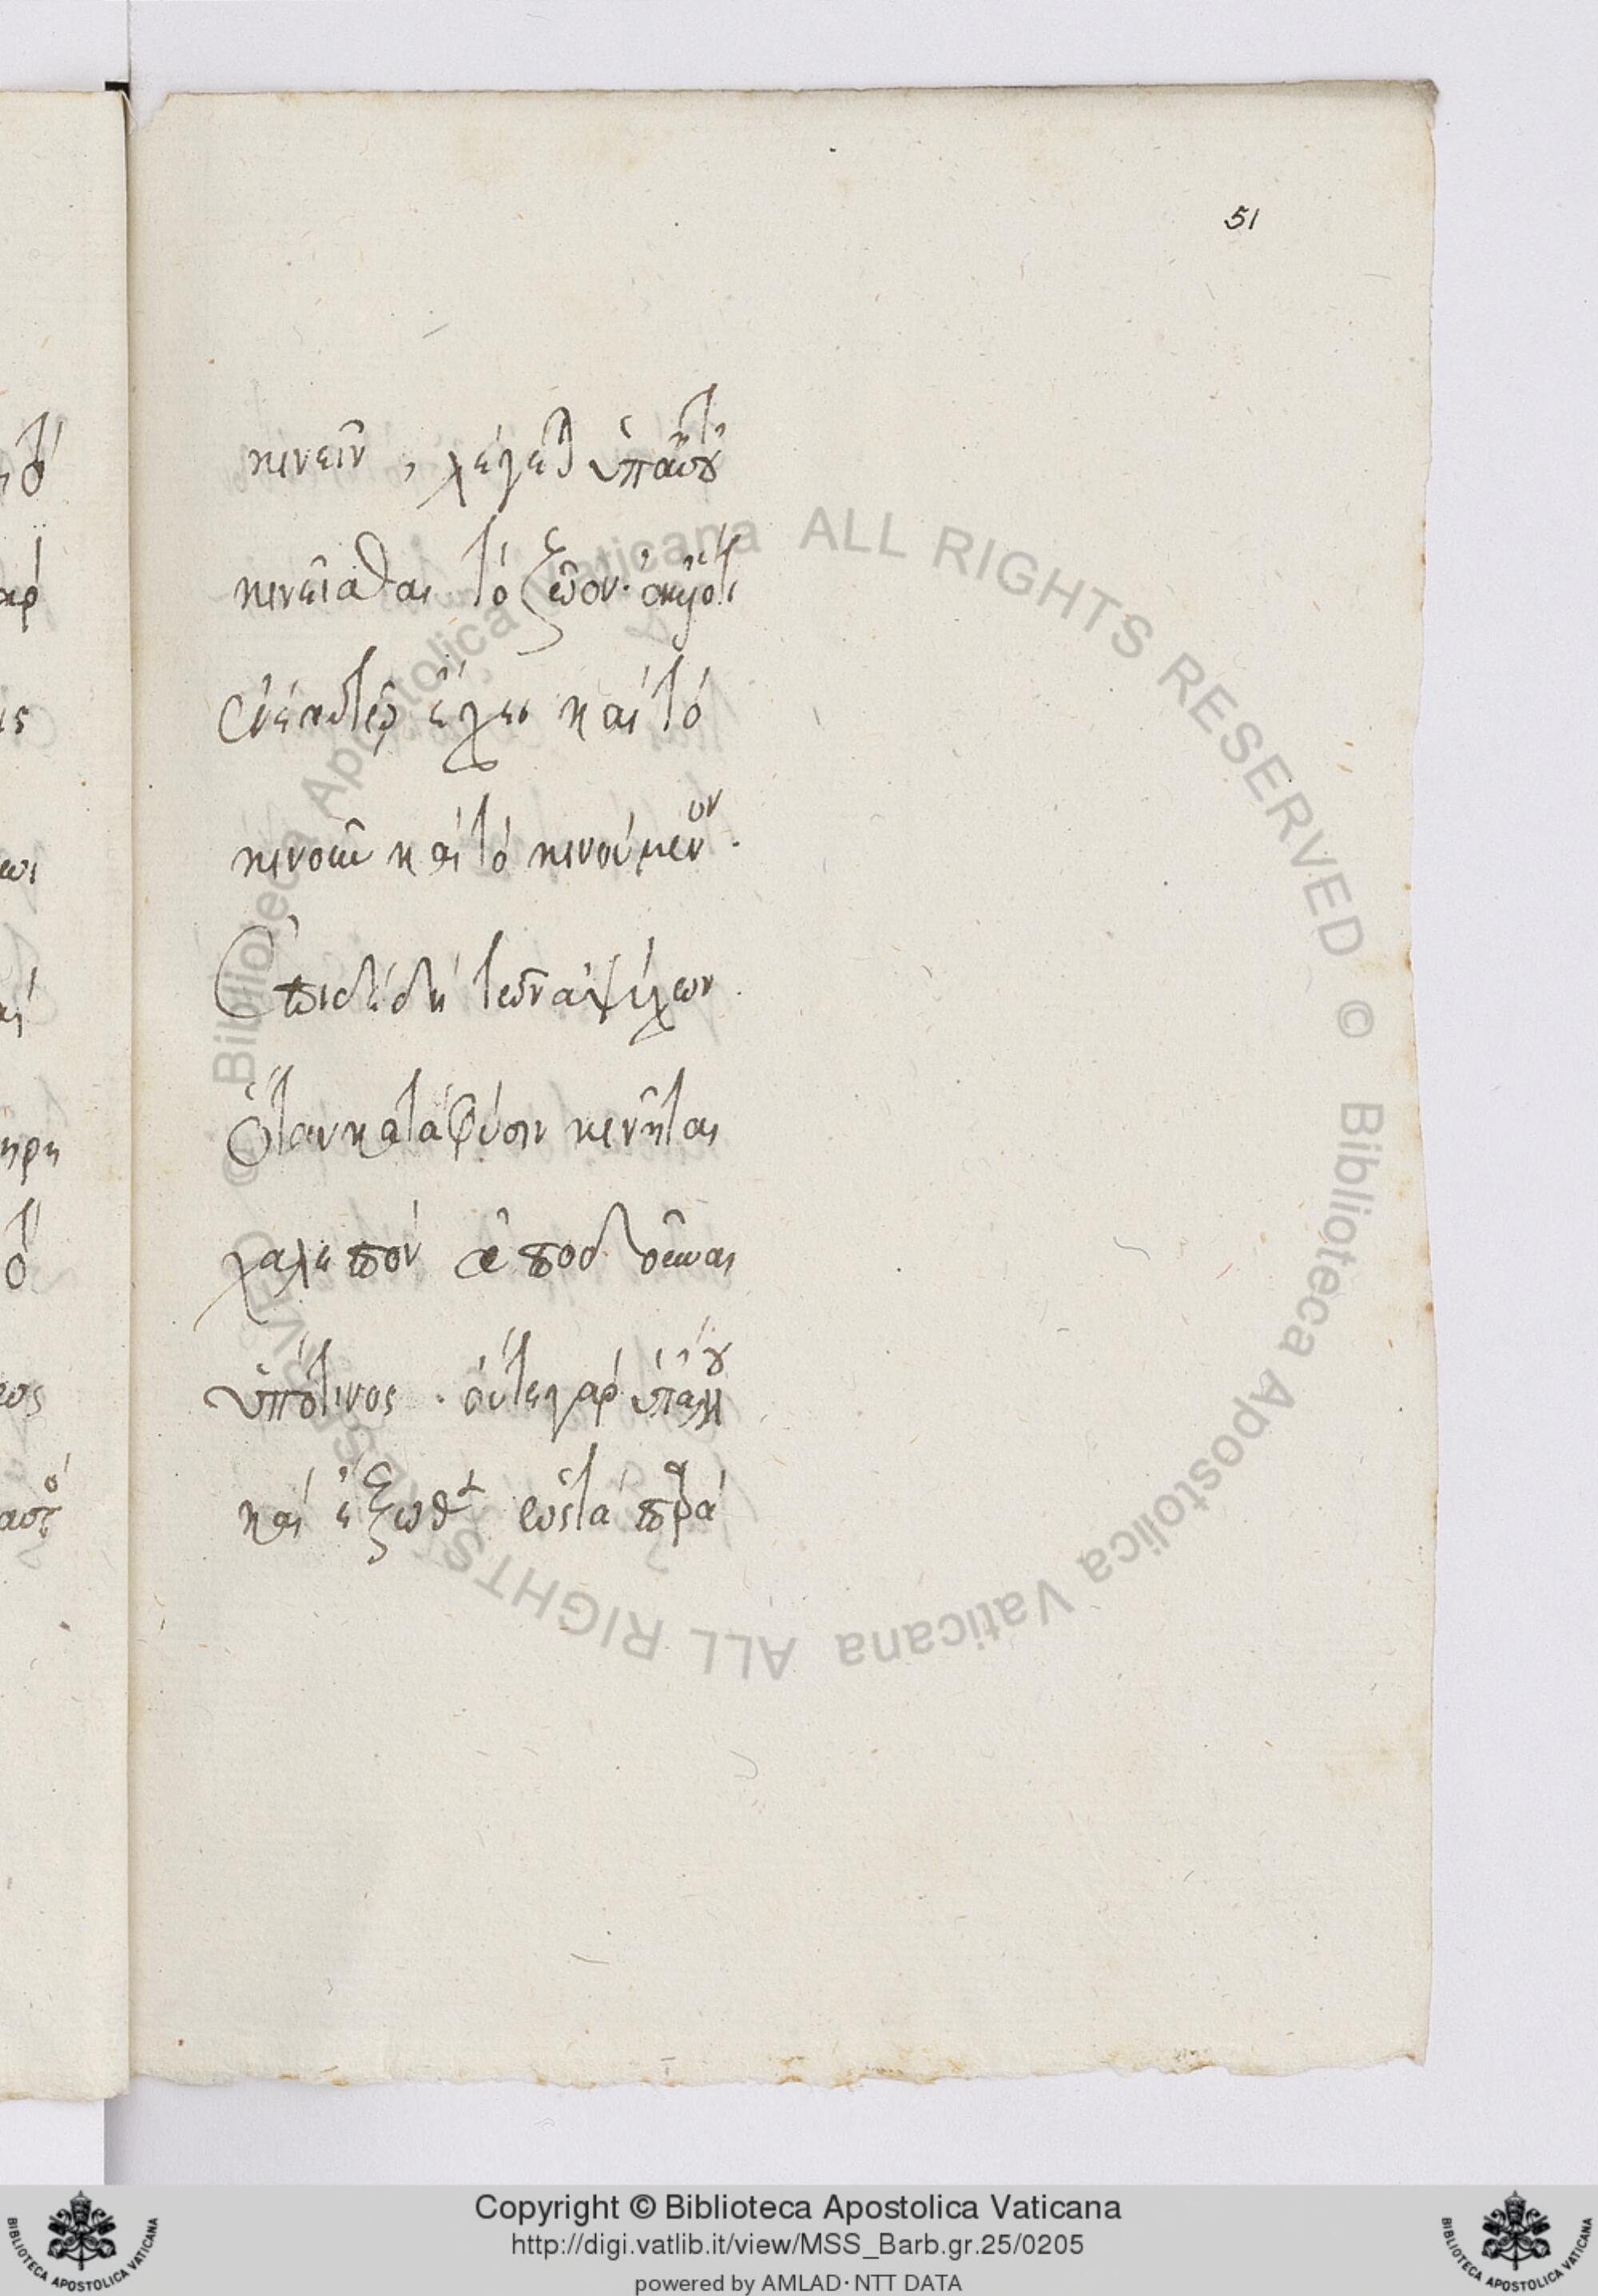 51
κινεῖν, λέγεται ὑπ' αὐτοῦ
κινεῖσθαι τὸ ζῶον. ἀλλ' ὅτι
ἐν ἑαυτῷ ἔχει καὶ τὸ
κινοῦν καὶ τὸ κινούμενον.
Ἐπιδέδὴ τῶν ἀψύχων
ὅταν κατὰ φύσιν κινῆται
χαλεπὸν ἀποδοῦναι
ὑπό τινος. οὔτε γὰρ ὑπ' ἄλλου
καὶ ἔξωθεν ὡς τὰ παρὰ
Copyright © Biblioteca Apostolica Vaticana
http://digi.vatlib.it/view/MSS_Barb.gr.25/0205
powered by AMLAD·NTT DATA
© Biblioteca Apostolica Vaticana ALL RIGHTS RESERVED © Biblioteca Apostolica Vaticana ALL RIGHTS RESERVED
BIBLIOTECA APOSTOLICA VATICANA
BIBLIOTECA APOSTOLICA VATICANA